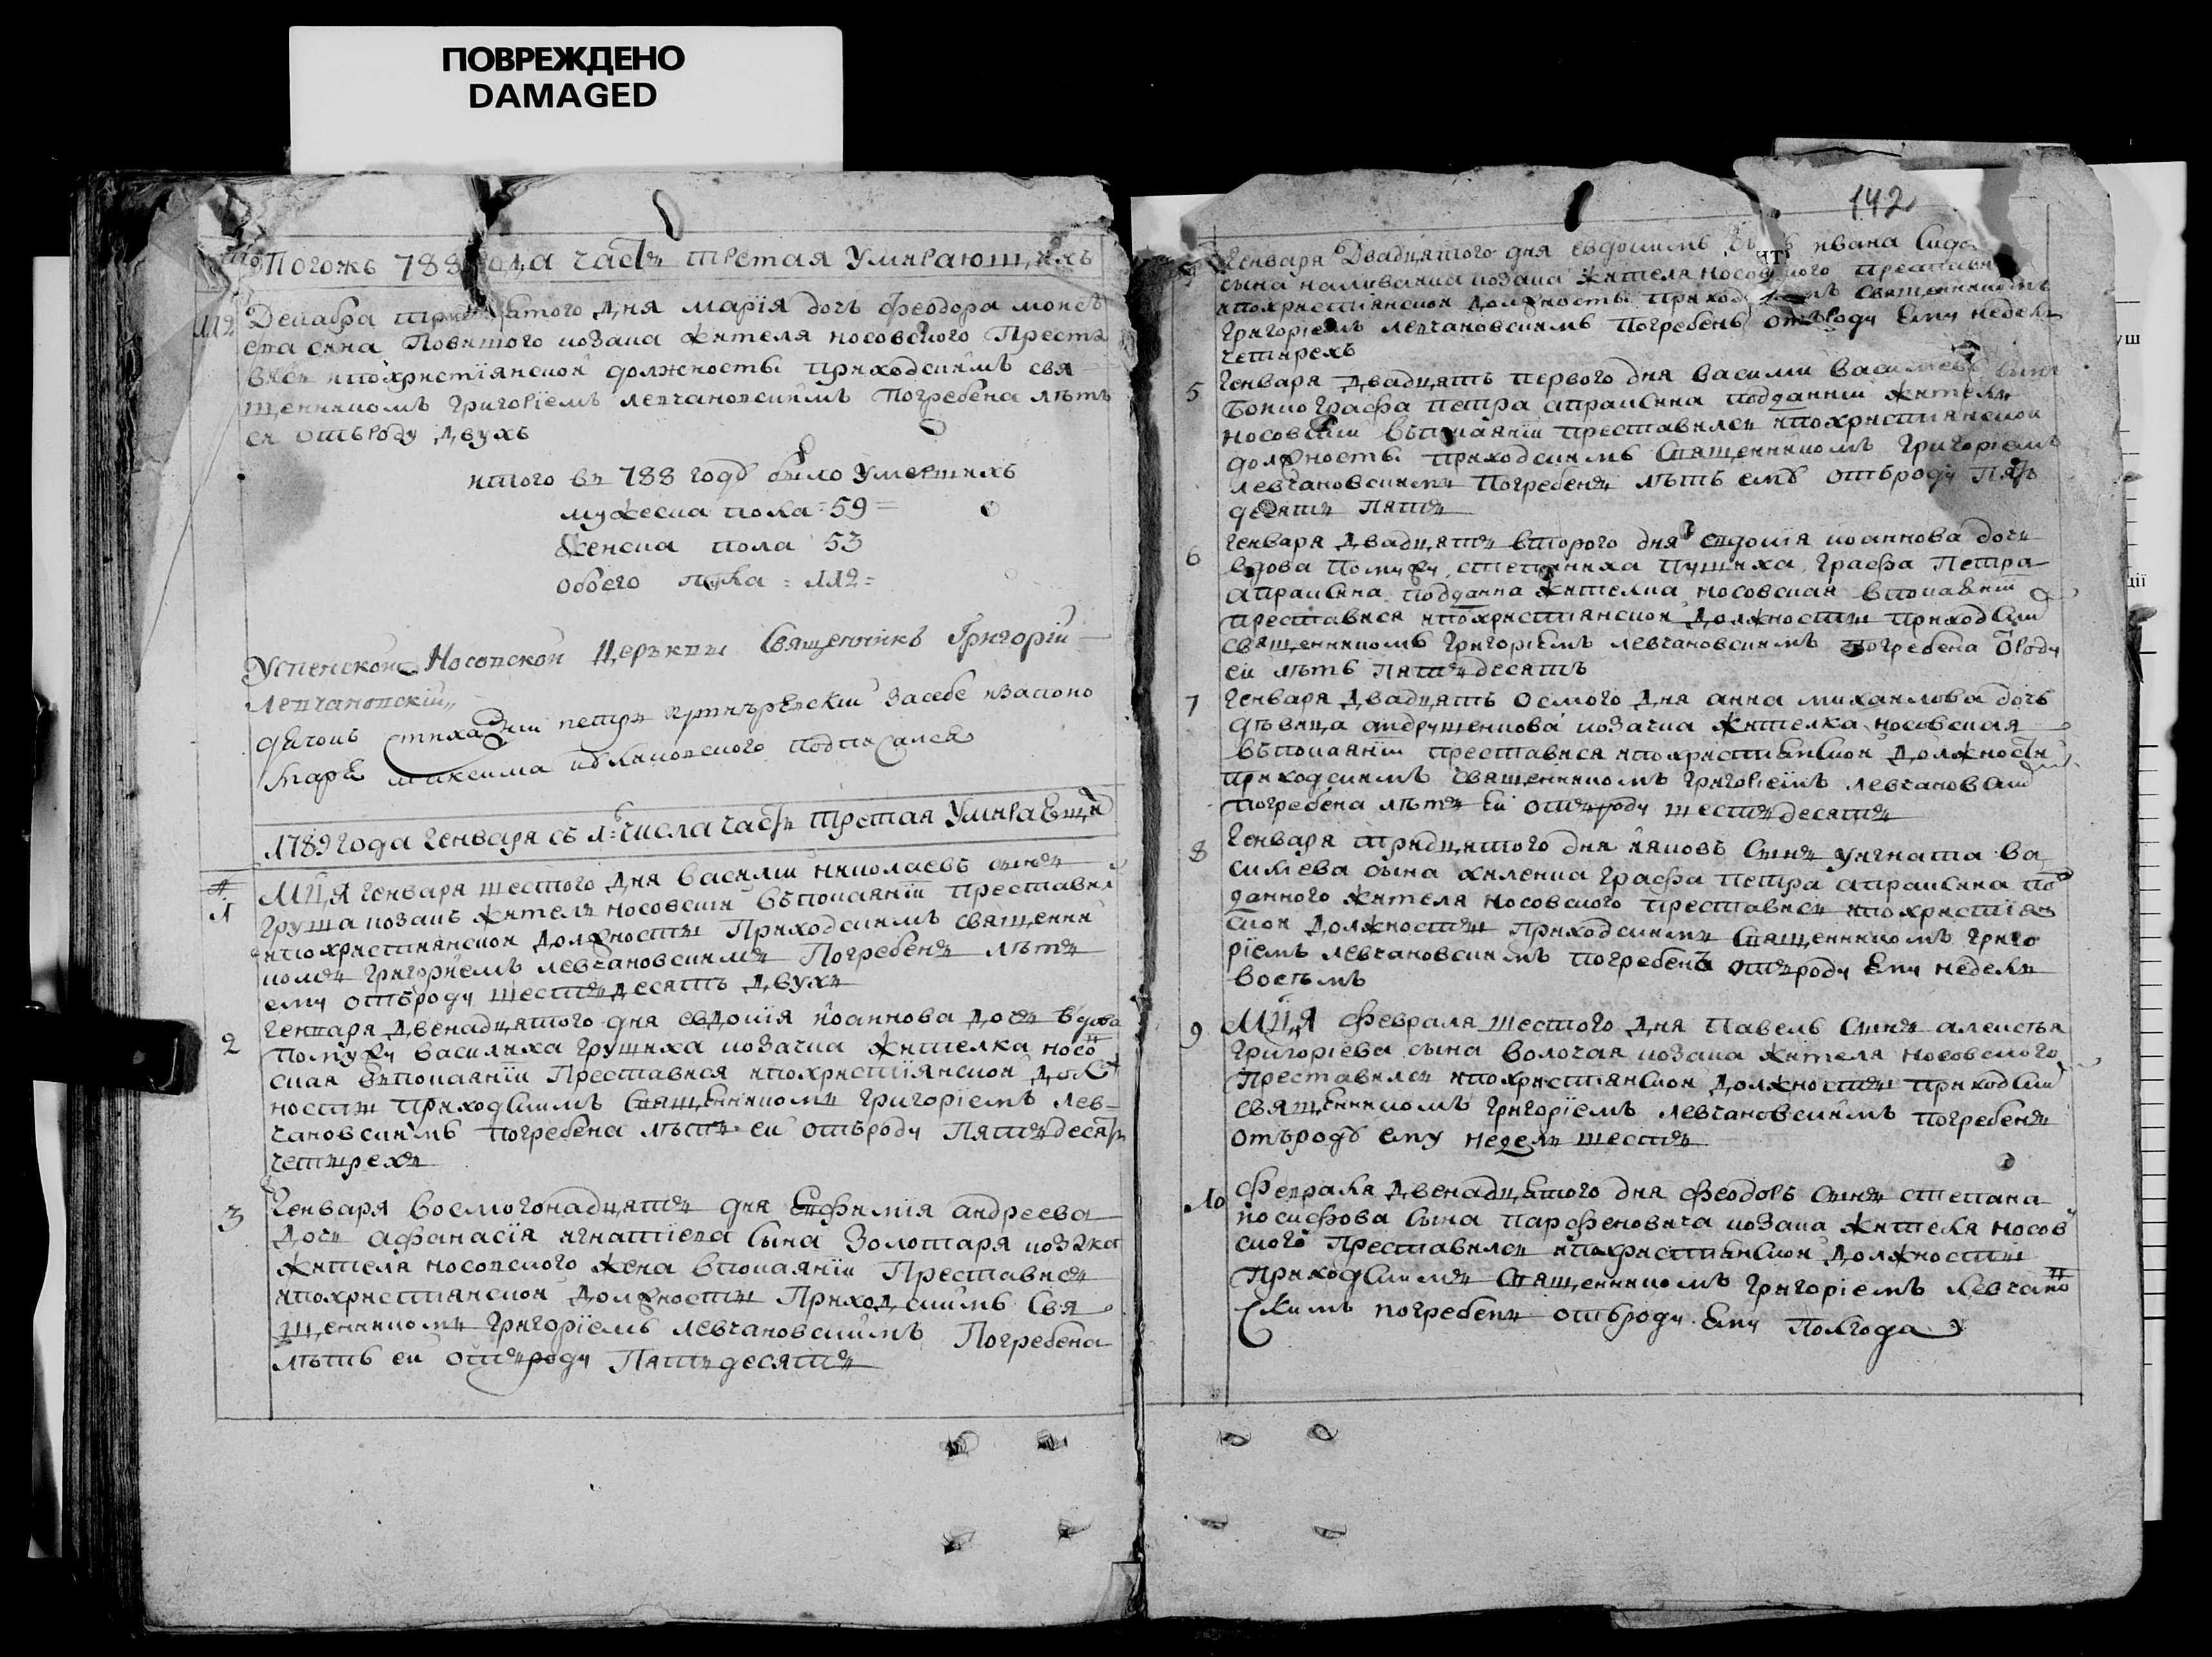 ПОВРЕЖДЕНО
DAMAGED
142
Тогожъ 788 года часть третая Умирающихъ
112 Декабра дня марія дочь феодора моисѣ
ева сина Повитого козака жителя носовского Преста
вися ипохристіянской должносты приходскимъ свя
щенникомъ Григоріемъ левчановскимъ Погребена лѣтъ
ея отъроду двухъ
итого въ 788 году было Умершихъ
мужеска пола = 59 =
женска пола 53
обоего пола = 112 =
Успенской Носовской Церькви Священникъ Григорій
Левчановскій
дячокъ петръ засебе изапоно
маря максима подписалея
1789 года Генваря съ 1: числа часть третая Умирающи
1 Мц҃я генваря шестого дня василій николаевъ синъ
Груша козакъ жителъ носовскій въпокаяніи преставис
ипохристиянской должносты Приходскимъ священни
комъ Григориемъ левчановскимъ Погребенъ лѣтъ
ему отъроду шестъдесятъ двухъ
2 Генваря двенадцятого дня евдокія иоаннова дочъ вдова
помужу василиха грушиха козачка жителка носо
ская впокаяніи Преставися ипохристіянской долж
ности приходскимъ Священникомъ Григоріемъ лев-
чановскимъ погребена лѣтъ ей отъроду Пятъдесятъ
четырехъ
3 Генваря восмогонадцятъ дня Евфимія андреева
дочъ афанасія игнатіева сына Золотаря козака
жителя носовского жена впокаяніи Преставися
ипохристіянской должности Приходскимъ Свя
щенникомъ Григоріемъ левчановскимъ Погребена
лѣтъ ей отъроду Пятъдесятъ
Генваря Двадцятого дня евдокимъ ивана
сына наливайка козака жителя носовского преставис
ипохристіянской должносты приход священникомъ
Григоріемъ левчановскимъ погребенъ отъроду Ему неделъ
четирехъ
5 Генваря двадцятъ первого дня василій василіевъ синъ
Бонко графа петра апраксина подданній жителъ
носовскій въпокаяніи преставилси ипохристіянской
должносты приходскимъ Священникомъ Григоріемъ
левчановскимъ Погребенъ лѣтъ ему отъроду Пятъ
десятъ пятъ
6 Генваря двадцятъ второго дня евдокія иоаннова дочъ
вдова помужу пушиха Графа Петра
апраксина подданна жителка носовская впокаяніи
преставися ипохристіянской должности приходским
священникомъ Григоріемъ левчановскимъ погребена ѿроду
ей лѣтъ Пятъдесятъ
7 Генваря двадцятъ осмого дня анна михаилова дочъ
дѣвица андрушенкова козачка жителка носовская
въпокаяніи преставися ипохристіянской должности
приходскимъ священникомъ Григоріемъ левчановским
погребена лѣтъ ей отъроду шестъдесятъ
8 Генваря тридцятого дня яковъ синъ игната ва
силиева сына хиленка графа петра апраксина под
данного жителя носовского преставися ипохристіян
ской должности приходскимъ Священникомъ Григо
ріемъ левчановскимъ погребенъ отъроду Ему неделъ
восъмъ
9 Мц҃я февраля шестого дня Павелъ синъ алексѣя
Григоріева сына волочая козака жителя носовского
Преставился ипохристіянской должности приходским
священникомъ Григоріемъ левчановскимъ погребенъ
отъроду ему неделъ шестъ
10 Февраля двенадцятого дня феодоръ синъ степана
иосифова сына парфеновича козака жителя носов
ского Преставился ипохристіянской должности
Приходскимъ Священникомъ Григоріемъ левчано
скимъ погребенъ отъроду Ему Полгода